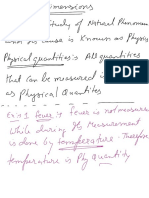 Dimensions
Study of Natural Phenomen
its cause is known as Physics
Physical quantities:- All quantities
that can be measured is
as Physical Quantites
Ex:1 fever:- fever is not measure
While during its Measurement
is done by temperature. Therefore
temperature is Ph Quantity